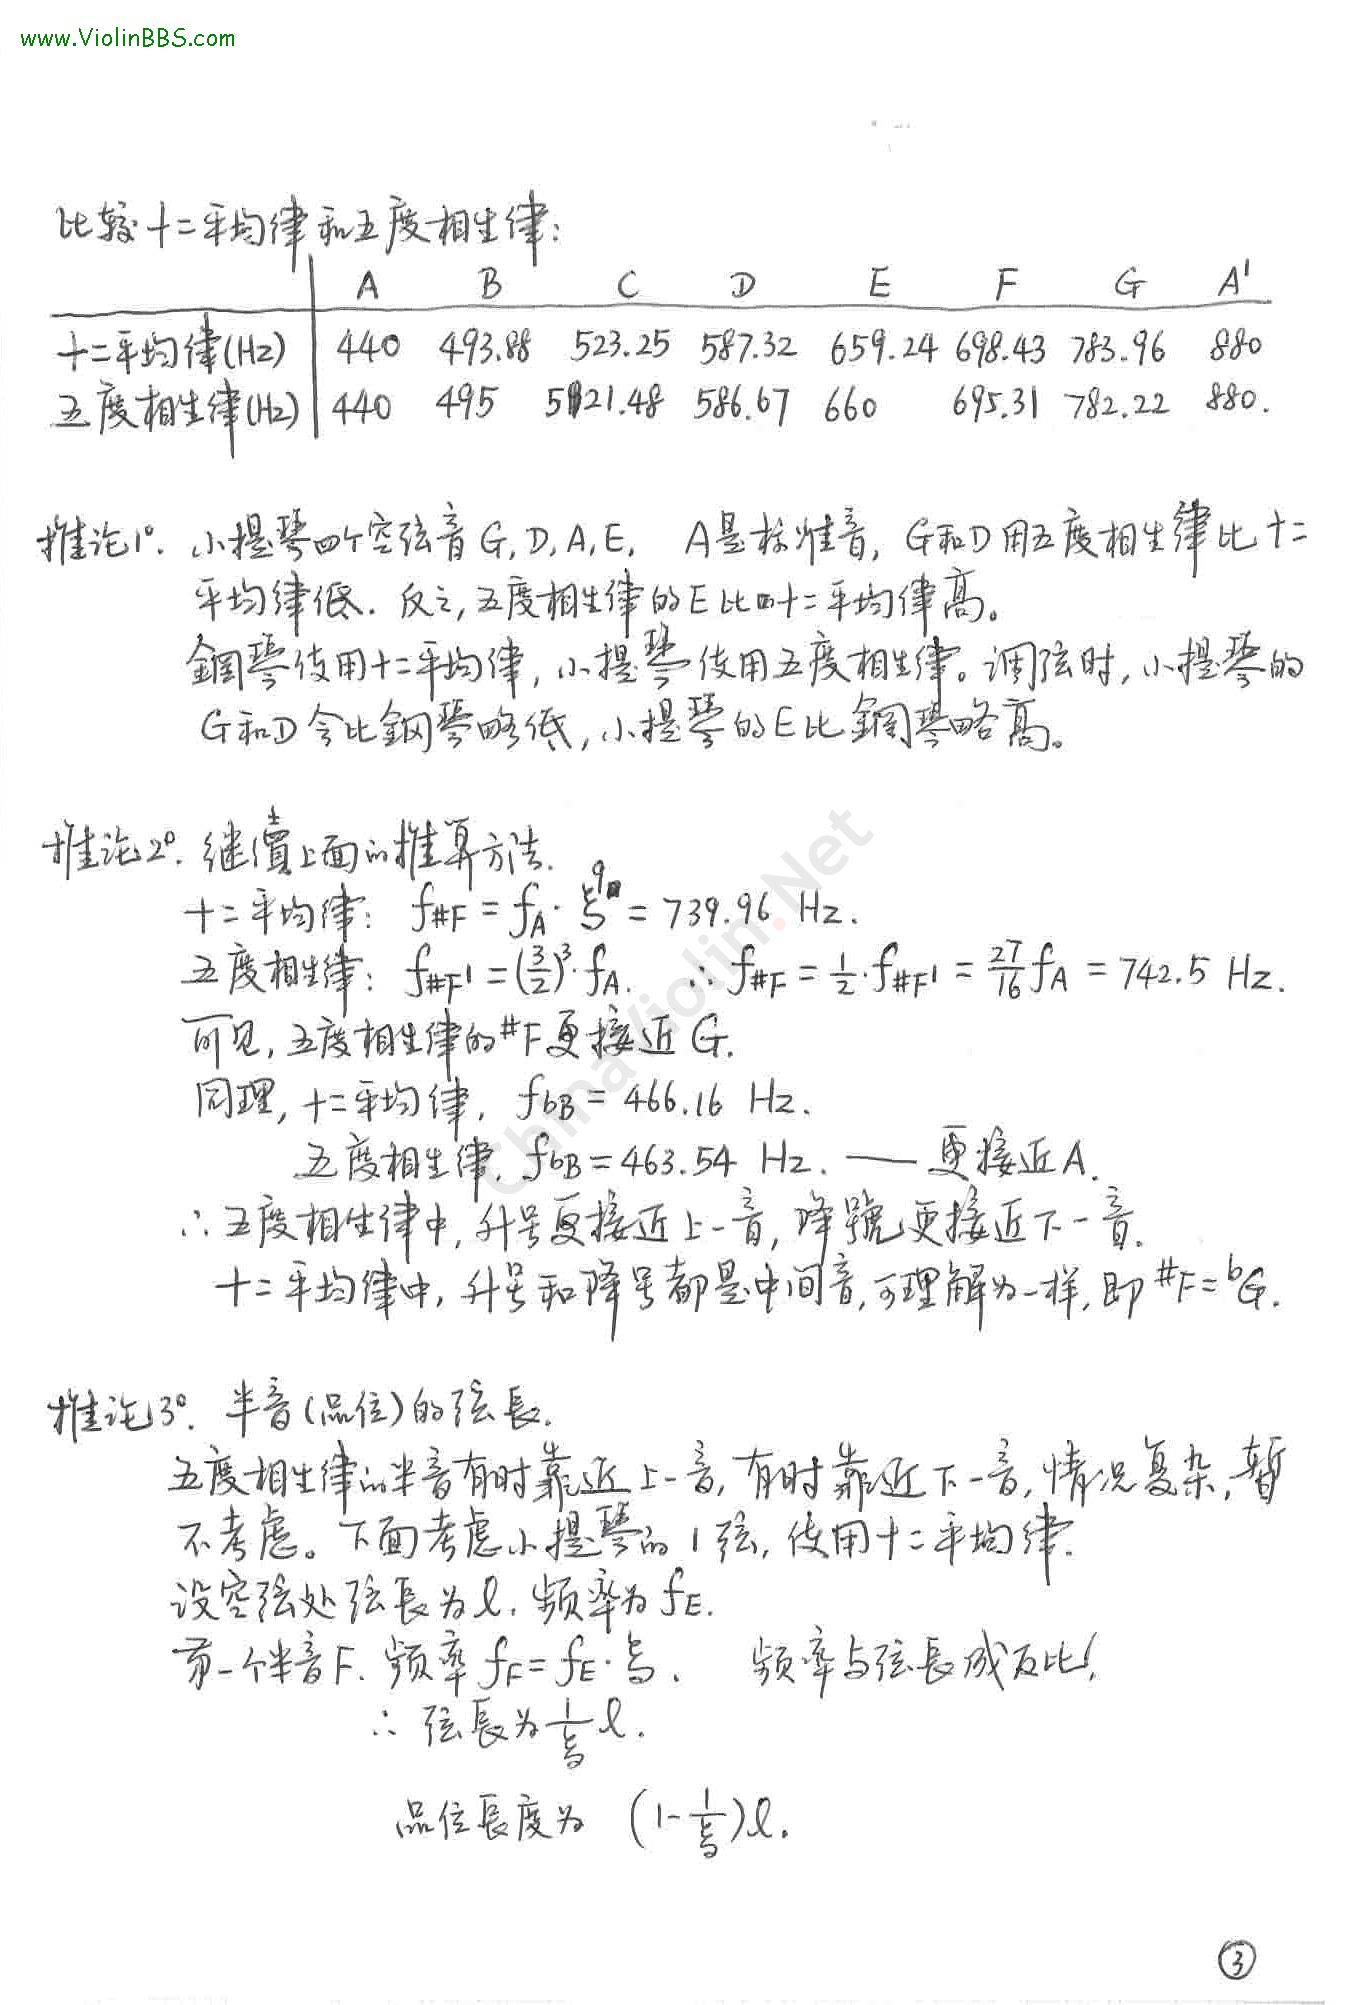 www.ViolinBBS.com
比较十二平均律和五度相生律:
A B C D E F G A'
十二平均律(Hz) 440 493.88 523.25 587.32 659.24 698.43 783.96 880
五度相生律(Hz) 440 495 521.48 586.67 660 695.31 782.22 880.
推论1°. 小提琴四个空弦音G,D,A,E, A是标准音, G和D用五度相生律比十二
平均律低. 反之,五度相生律的E比十二平均律高。
鋼琴使用十二平均律,小提琴使用五度相生律。调弦时,小提琴的
G和D会比鋼琴略低,小提琴的E比鋼琴略高。
推论2°. 继續上面的推算方法.
十二平均律: f#F = fA · ξ⁹ = 739.96 Hz.
五度相生律: f#F' = (3/2)³ · fA. ∴ f#F = 1/2 · f#F' = 27/16 fA = 742.5 Hz.
可见,五度相生律的#F更接近G.
同理,十二平均律, fbB = 466.16 Hz.
五度相生律, fbB = 463.54 Hz. —— 更接近A.
∴ 五度相生律中,升号更接近上一音,降號更接近下一音.
十二平均律中,升号和降号都是中间音,可理解为一样,即 #F = bG.
推论3°. 半音(品位)的弦長.
五度相生律的半音有时靠近上一音,有时靠近下一音,情况复杂,暂
不考虑。下面考虑小提琴的1弦,使用十二平均律.
设空弦处弦長为l. 频率为fE.
第一个半音F. 频率 fF = fE · ξ. 频率与弦長成反比!
∴ 弦長为 1/ξ l.
品位長度为 (1 - 1/ξ)l.
③
ChinaViolin.Net